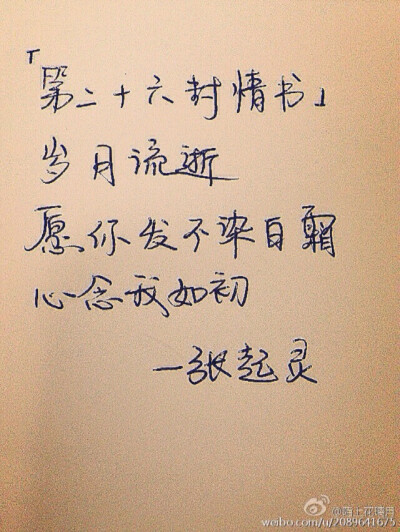 「第二十六封情书」
岁月流逝
愿你发不染白霜
心念我如初
—张起灵
weibo.com/u/2089641675